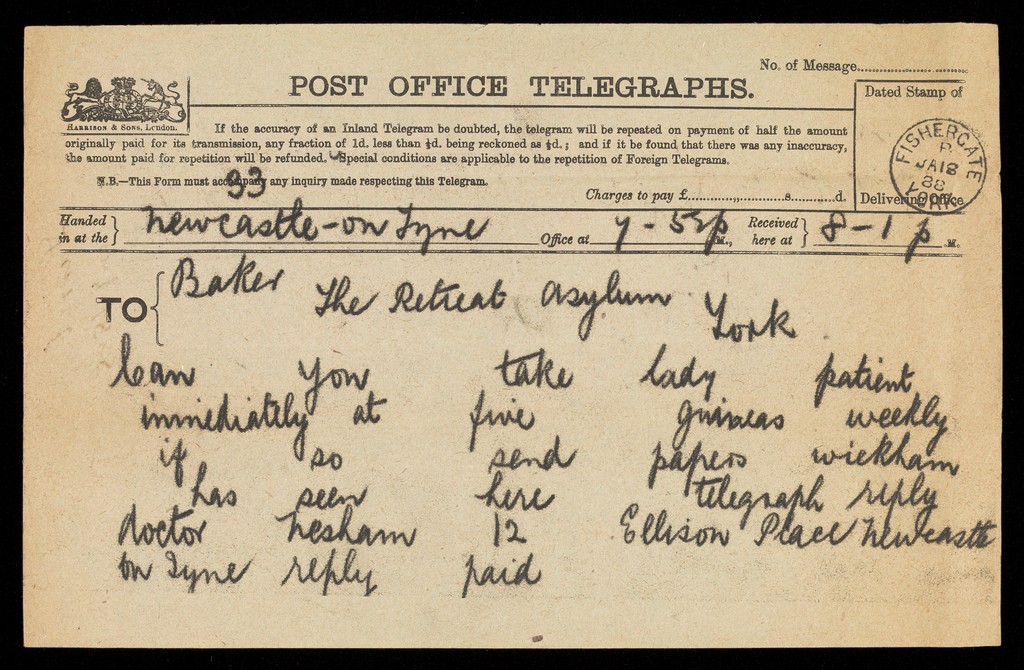 No. of Message
POST OFFICE TELEGRAPHS.
Dated Stamp of
HARRISON & SONS, London.
If the accuracy of an Inland Telegram be doubted, the telegram will be repeated on payment of half the amount
originally paid for its transmission, any fraction of 1d. less than ½d. being reckoned as ½d.; and if it be found that there was any inaccuracy,
the amount paid for repetition will be refunded. Special conditions are applicable to the repetition of Foreign Telegrams.
N.B.—This Form must accompany any inquiry made respecting this Telegram.
33
FISHERGATE
JA 18
88
YORK
Charges to pay £ s d.
Delivering Office
Handed in at the } Newcastle-on Tyne Office at 7-52p M., Received here at } 8-1 p .M.
TO { Baker The Retreat Asylum York
Can you take lady patient
immediately at five guineas weekly
if so send papers wickham
has seen here telegraph reply
doctor Nesham 12 Ellison Place Newcastle
on Tyne reply paid